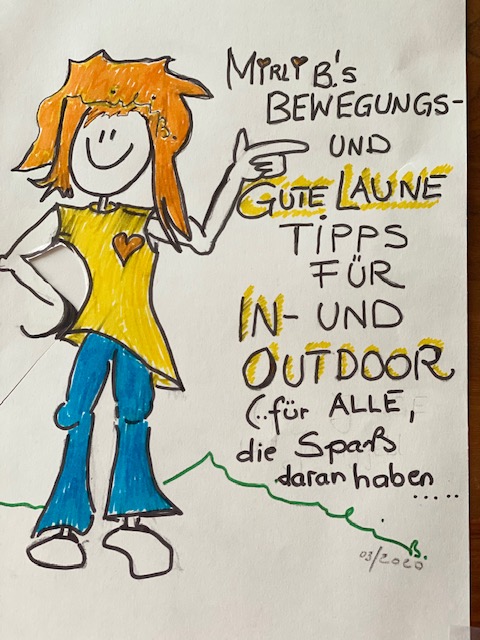 MiRLi B.'s
BEWEGUNGS-
UND
GUTE LAUNE
TiPPS
FÜR
IN- UND
OUTDOOR
(..für ALLE,
die Spaß
daran haben
.....
B.
03/2020